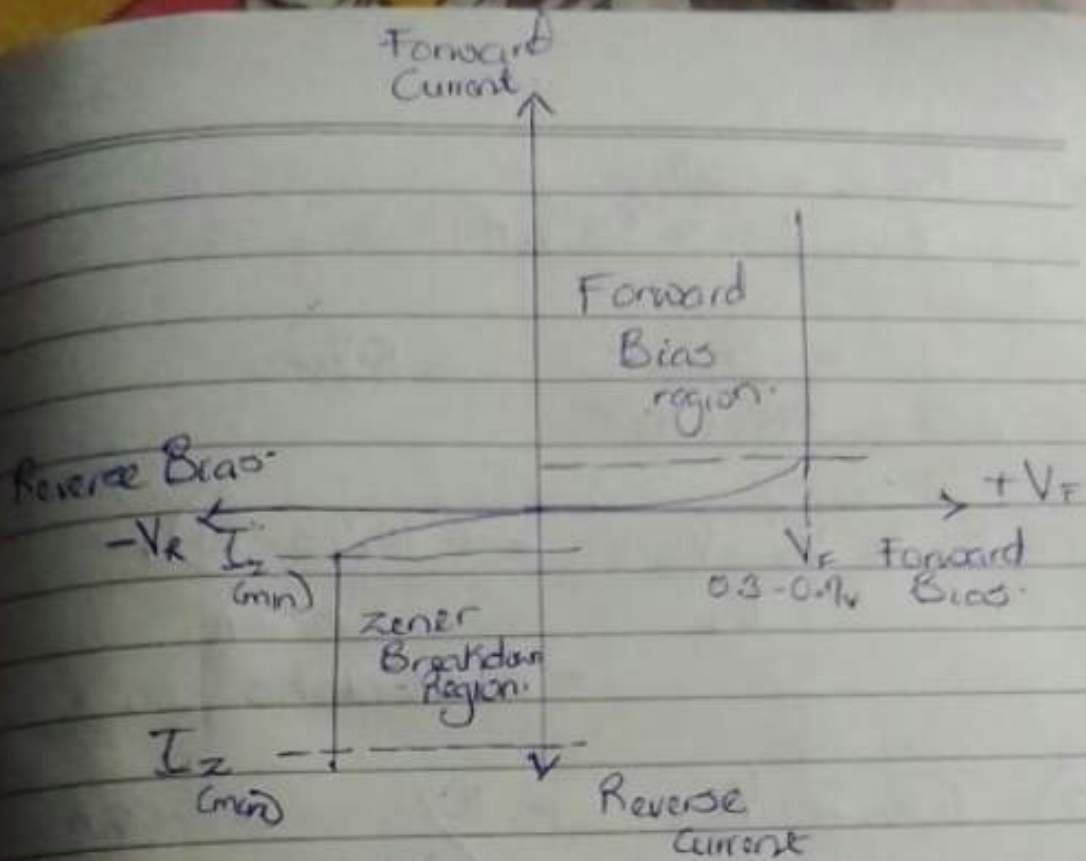 Forward
Current
Forward
Bias
region.
Reverse Bias.
+VF
-VR
Iz
(min)
VF
0.3-0.7v
Forward
Bias.
Zener
Breakdown
Region.
Iz
Reverse
Current